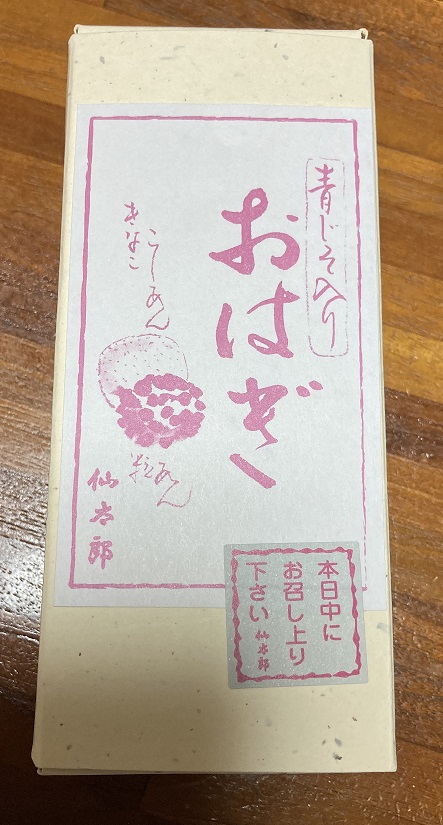 青じそ入り
おはぎ
こしあん
きなこ
粒あん
仙太郎
本日中に
お召し上り
下さい 仙太郎